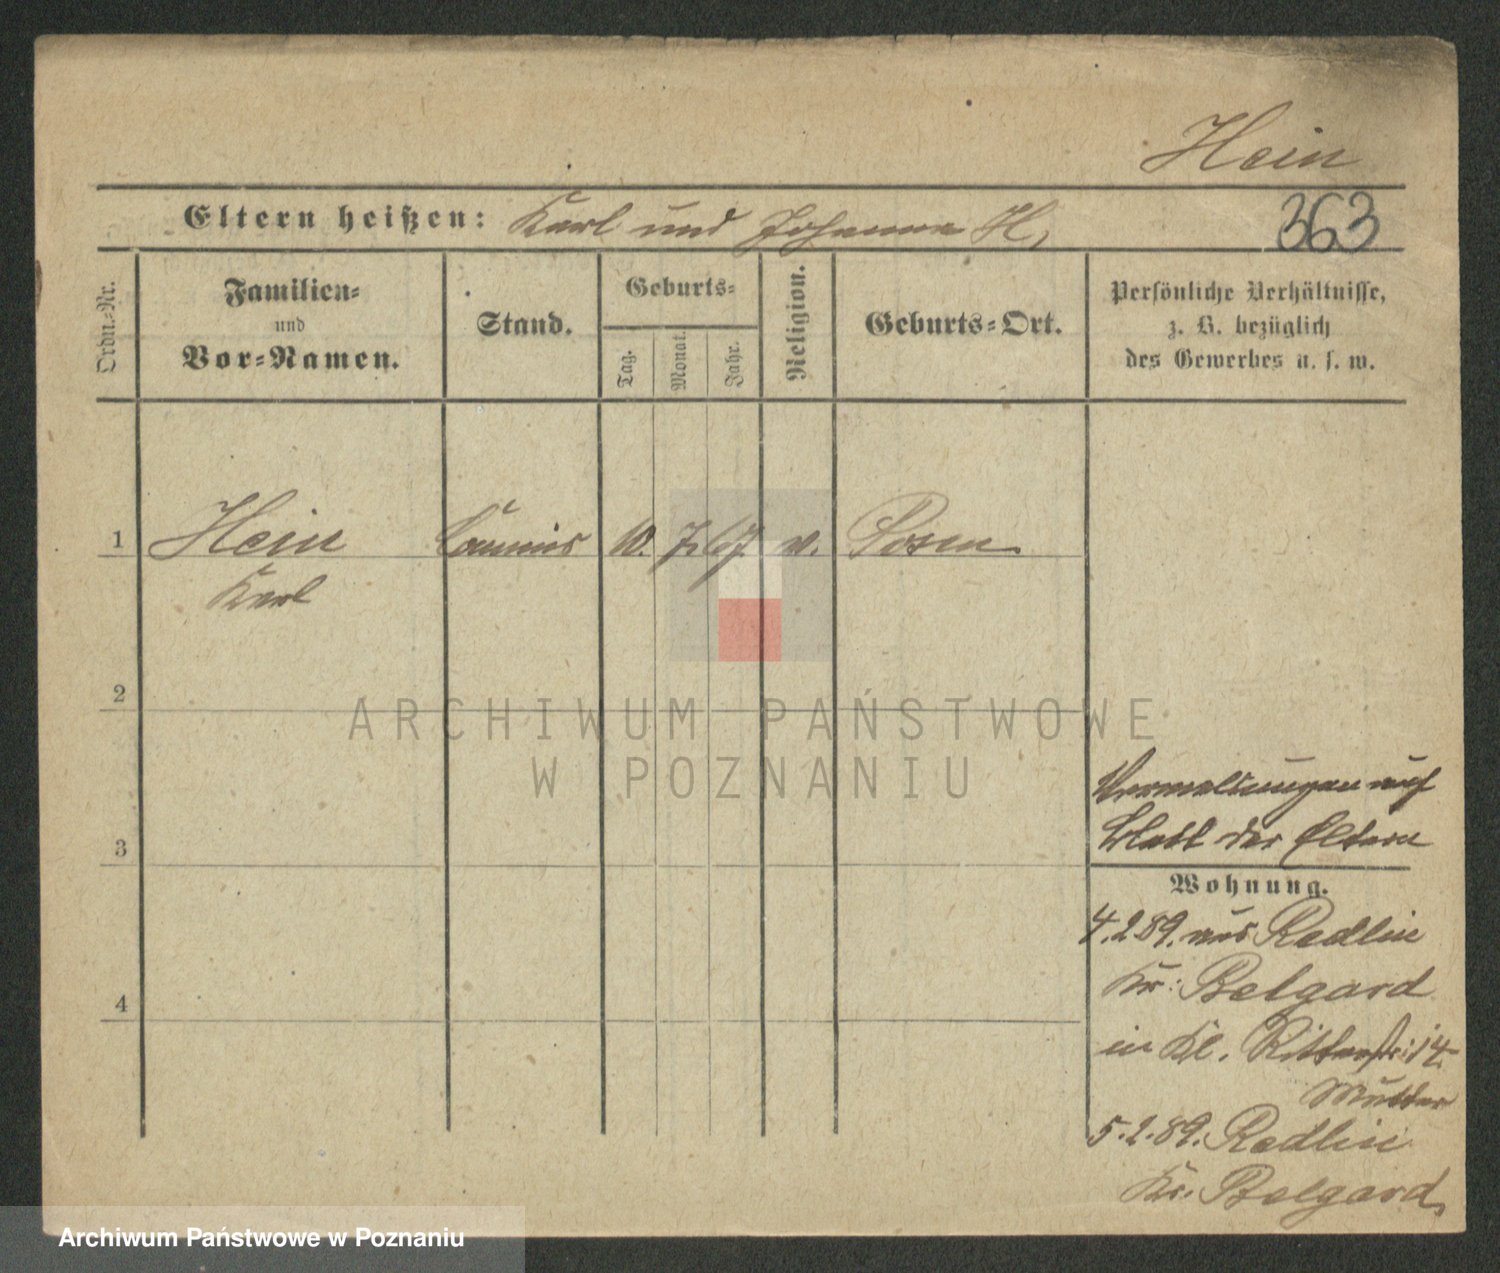 Hein
Eltern heißen: Karl und Johanna H.
363
Ordn.-Nr.
Familien-
und
Vor-Namen.
Stand.
Geburts-
Tag.
Monat.
Jahr.
Religion.
Geburts-Ort.
Persönliche Verhältnisse,
z. B. bezüglich
des Gewerbes u. s. w.
1
Hein
10. 7. 67
Posen
Karl
2
ARCHIWUM PAŃSTWOWE
W POZNANIU
3
auf
Blatt der Eltern
Wohnung.
4.2.89. aus Redlin
Kr: Belgard
4
in Kl. Ritterstr: 14.
Mutter
5.2.89. Redlin
Kr. Belgard
Archiwum Państwowe w Poznaniu